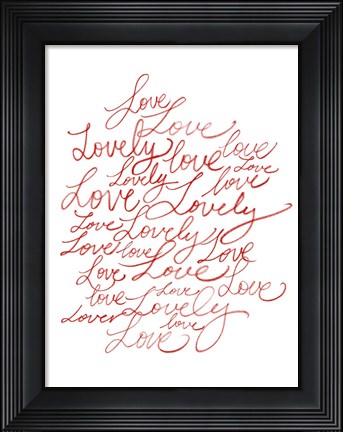 Love
Love
Lovely love love
Lovely love Love
Love Lovely
Love Lovely
Love love Love
Love Love
love Love Love
Lover Lovely
Love love